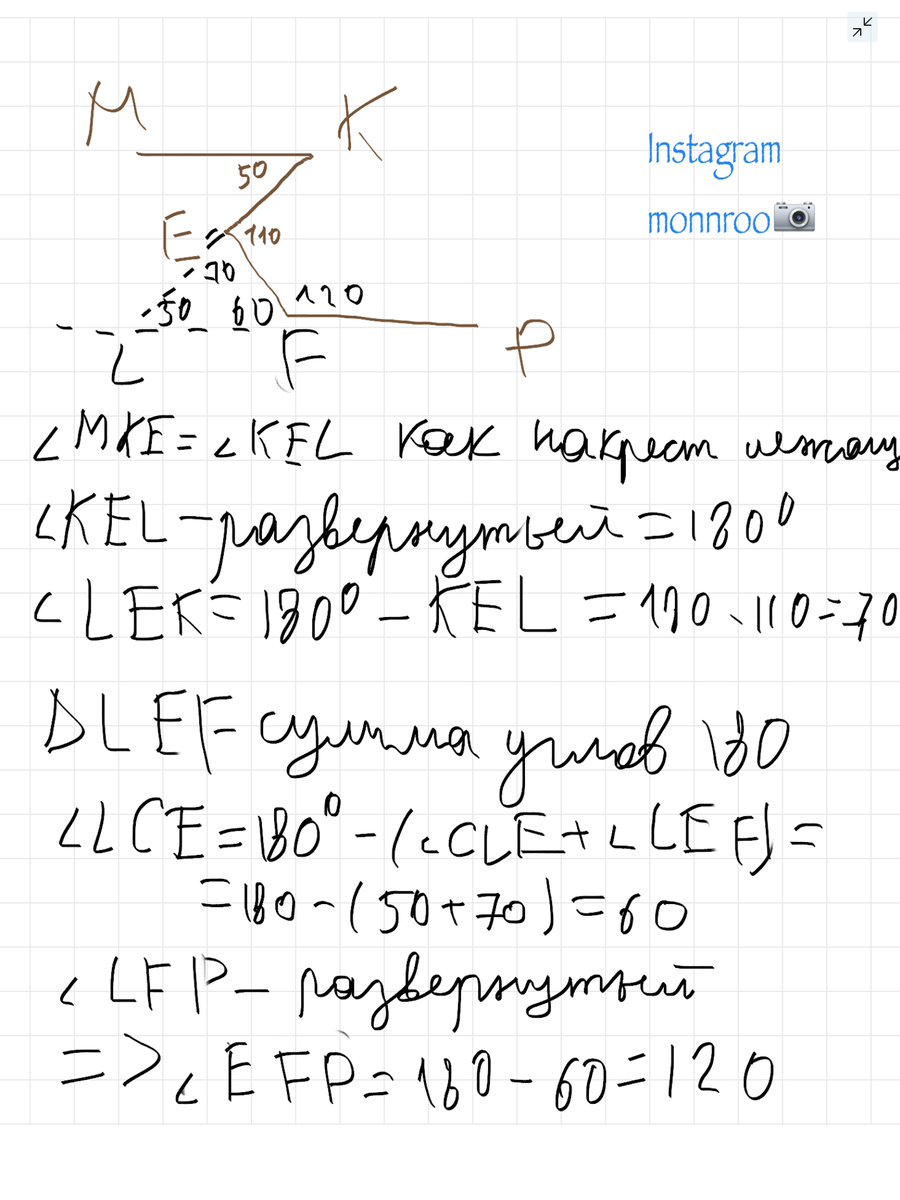 M K
Instagram
monnroo
50
E 110
70
50 60 120
L F P
∠MKE=∠KEL как накрест лежащ
∠KEL-развернутый=180°
∠LEK=180°-KEL=190-110=70
∆LEF сумма углов 180
∠LCE=180°-(∠CLE+∠LEF)=
=180-(50+70)=60
∠LFP-развернутый
=>∠EFP=180-60=120